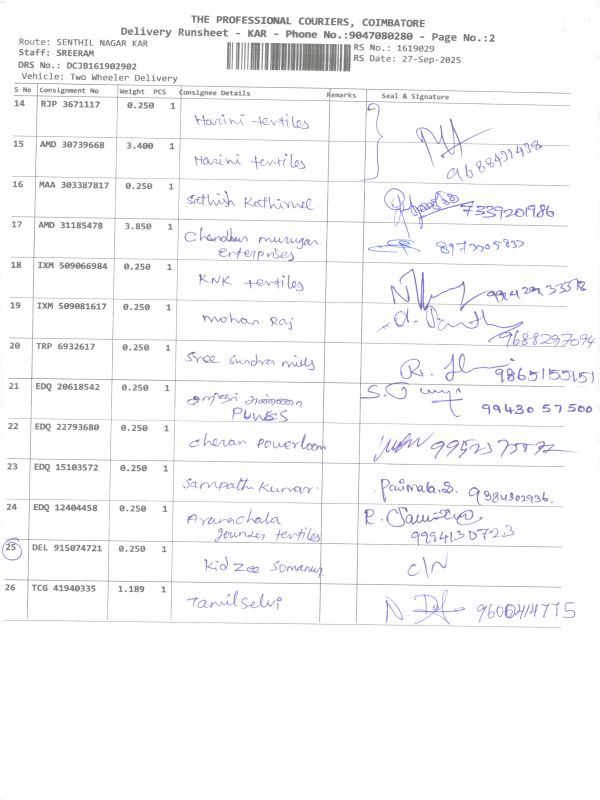 THE PROFESSIONAL COURIERS, COIMBATORE
Delivery Runsheet - KAR - Phone No.:9047080280 - Page No.:2
Route: SENTHIL NAGAR KAR
RS No.: 1619029
Staff: SREERAM
RS Date: 27-Sep-2025
DRS No.: DCJB161902902
Vehicle: Two Wheeler Delivery
S No Consignment No Weight PCS Consignee Details Remarks Seal & Signature
14 RJP 3671117 0.250 1
Harini textiles
15 AMD 30739668 3.400 1
Harini textiles
9688431438
16 MAA 303387817 0.250 1
Sathish Kathirvel 7339201986
17 AMD 31185478 3.850 1
Chandhan murugan
enterprises
18 IXM 509066984 0.250 1
KNK textiles
19 IXM 509081617 0.250 1
Mohan Raj
9688297094
20 TRP 6932617 0.250 1
Sree Sundra mills 9865155151
21 EDQ 20618542 0.250 1
99430 57500
22 EDQ 22793680 0.250 1
Cheran Powerloom
23 EDQ 15103572 0.250 1
Sampath Kumar. Parimala.S. 9884302936.
24 EDQ 12404458 0.250 1
Arunachala
textiles 9994130723
25 DEL 915074721 0.250 1
Kid Zee C/N
26 TCG 41940335 1.189 1
Tamil Selvi 9600414775